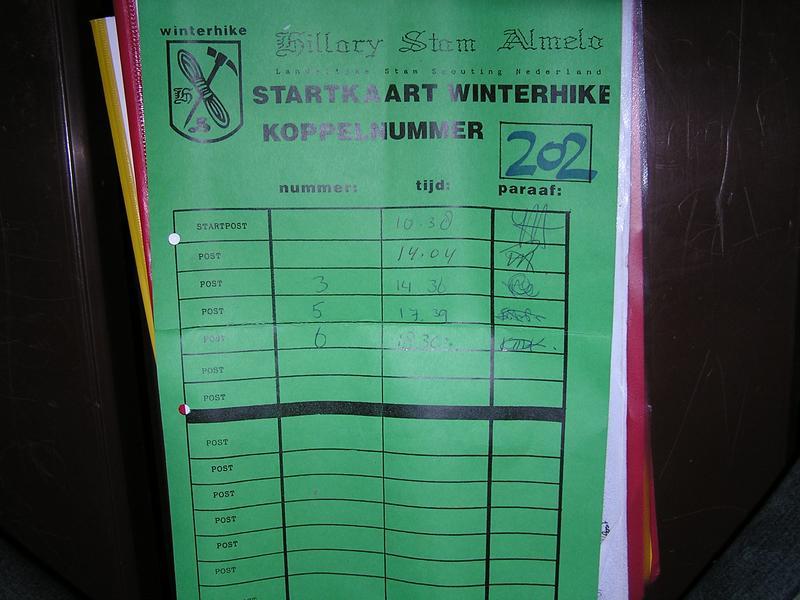 winterhike
Hillary Stam Almelo
Landelijke Stam Scouting Nederland
STARTKAART WINTERHIKE
KOPPELNUMMER 202
nummer: tijd: paraaf:
STARTPOST 10.30
POST 14.04
POST 3 14 36
POST 5 17.39
POST 6
POST
POST
POST
POST
POST
POST
POST
POST